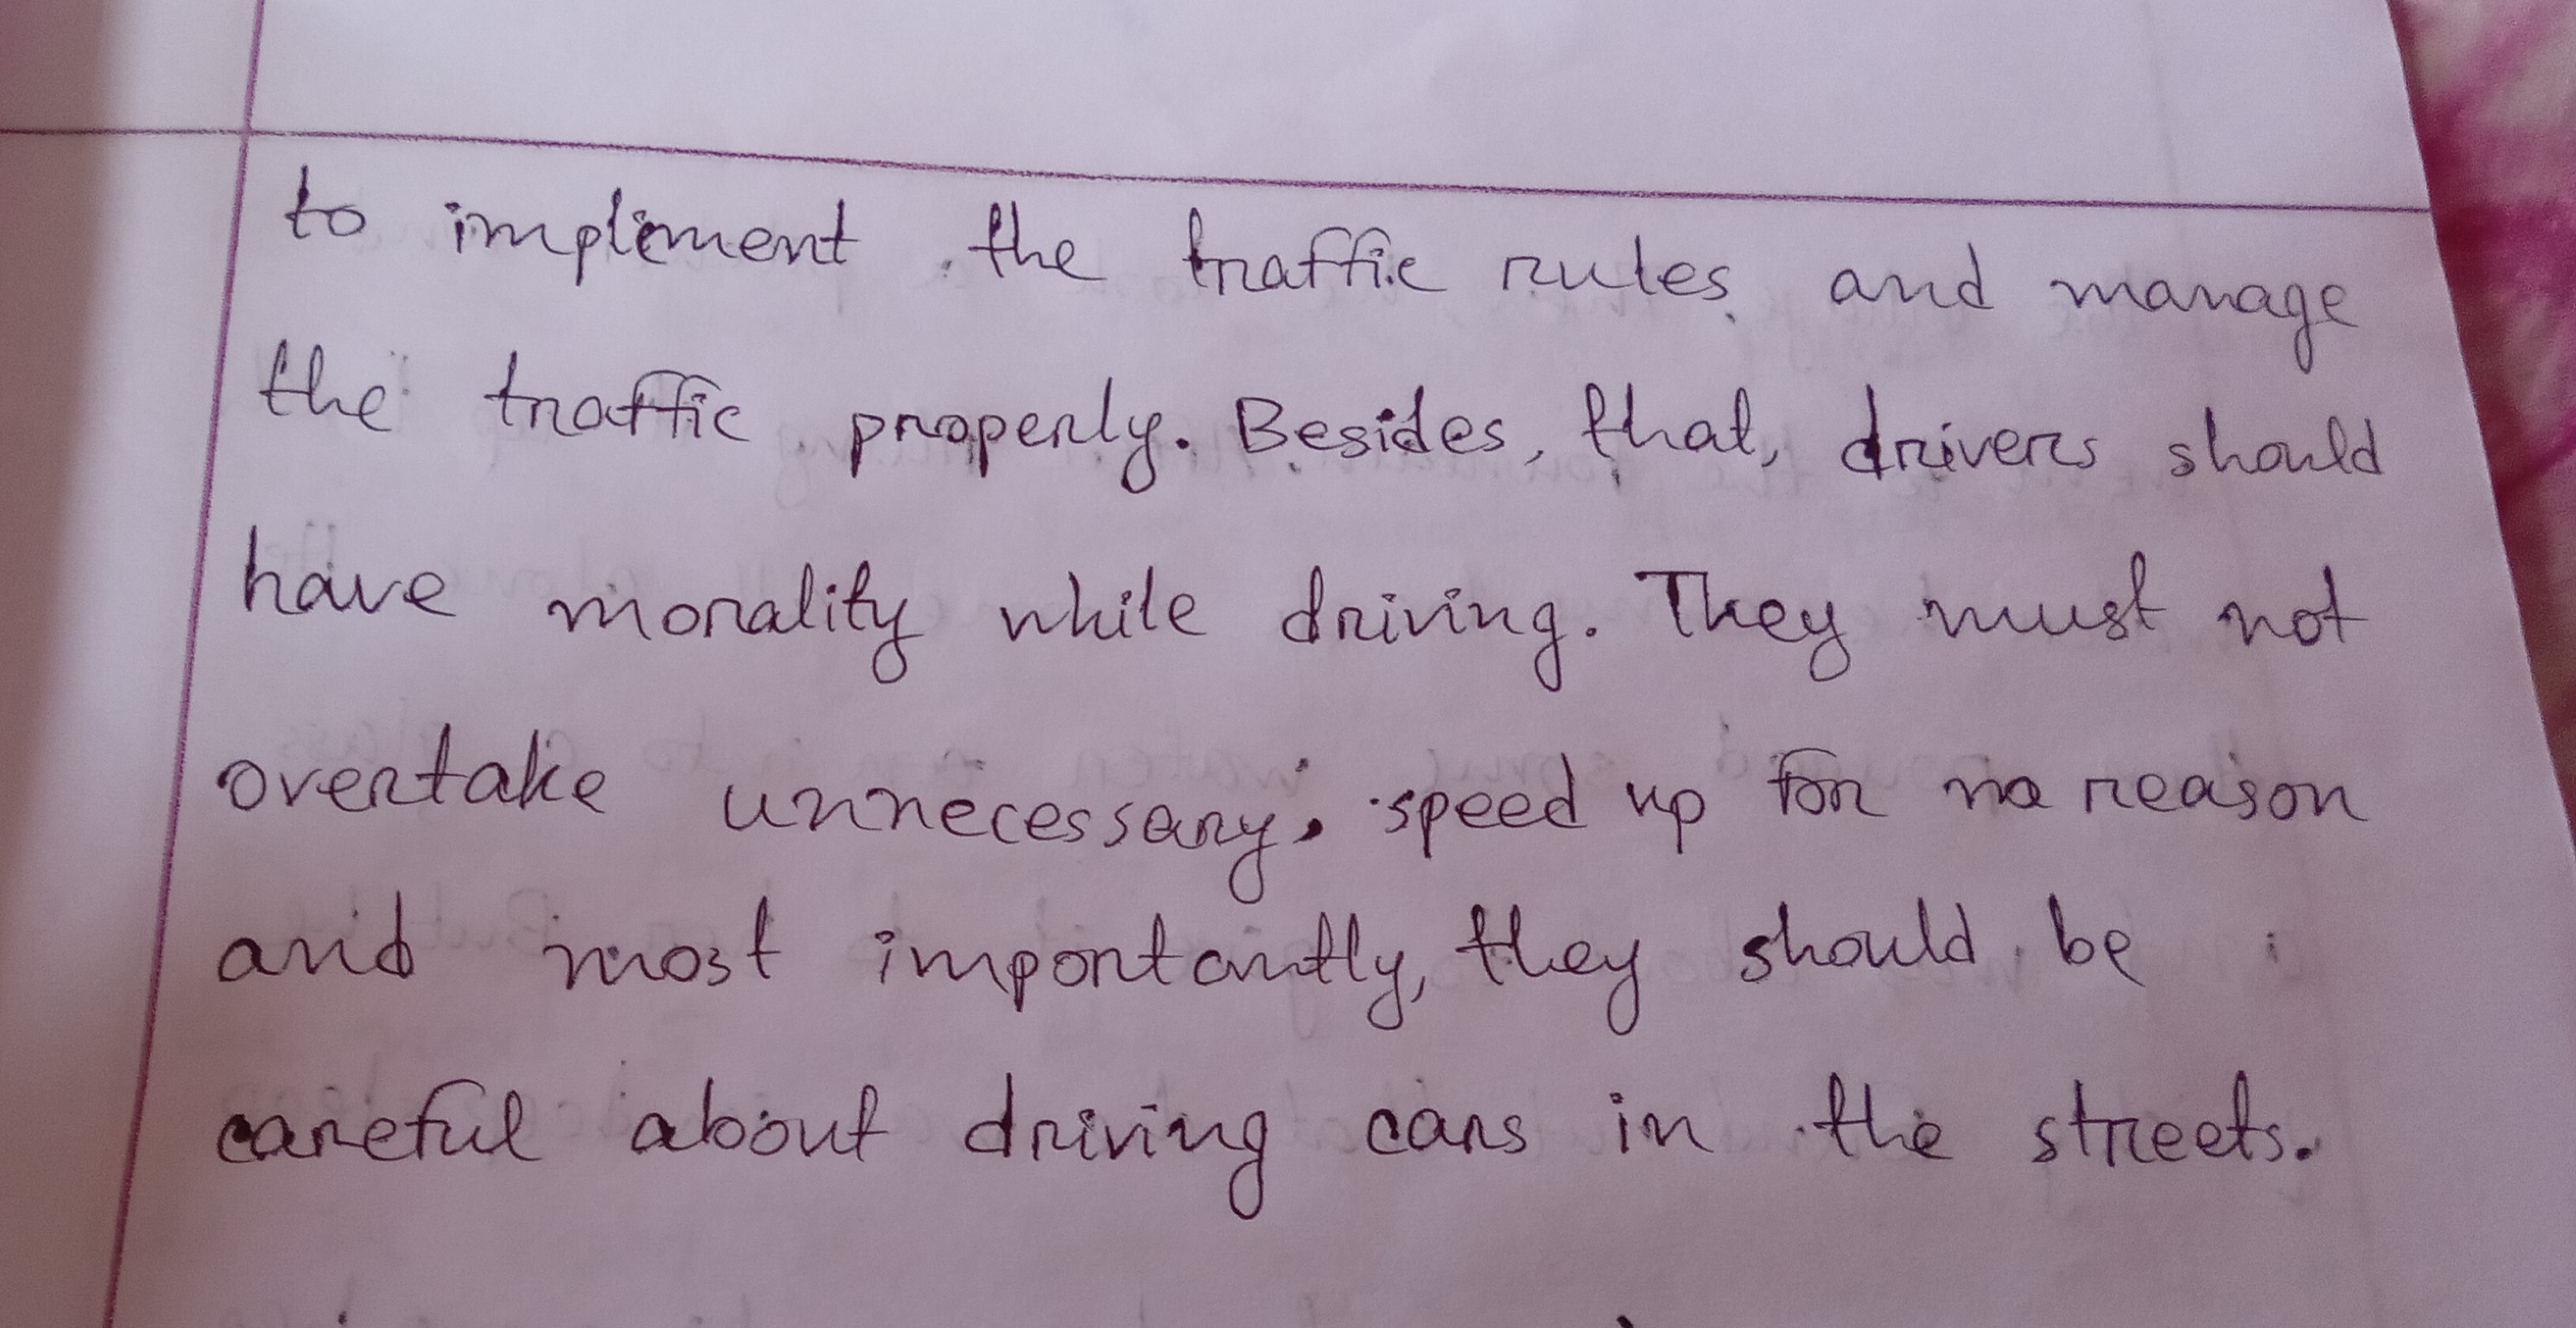 to impliment the traffic rules and manage
the traffic properly. Besides, that, drivers should
have morality while driving. They must not
overtake unnecessary, speed up for no reason
and most importantly, they should be
careful about driving cars in the streets.